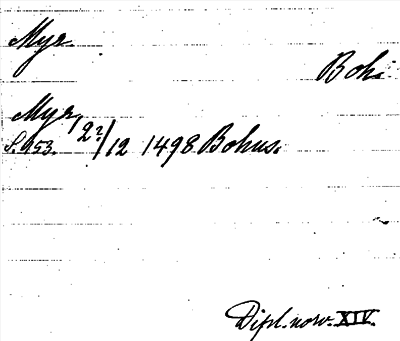 Myr.
Boh.
Myr,
S. 953. 2?/12 1498 Bohus.
Dipl. norv. XIV.